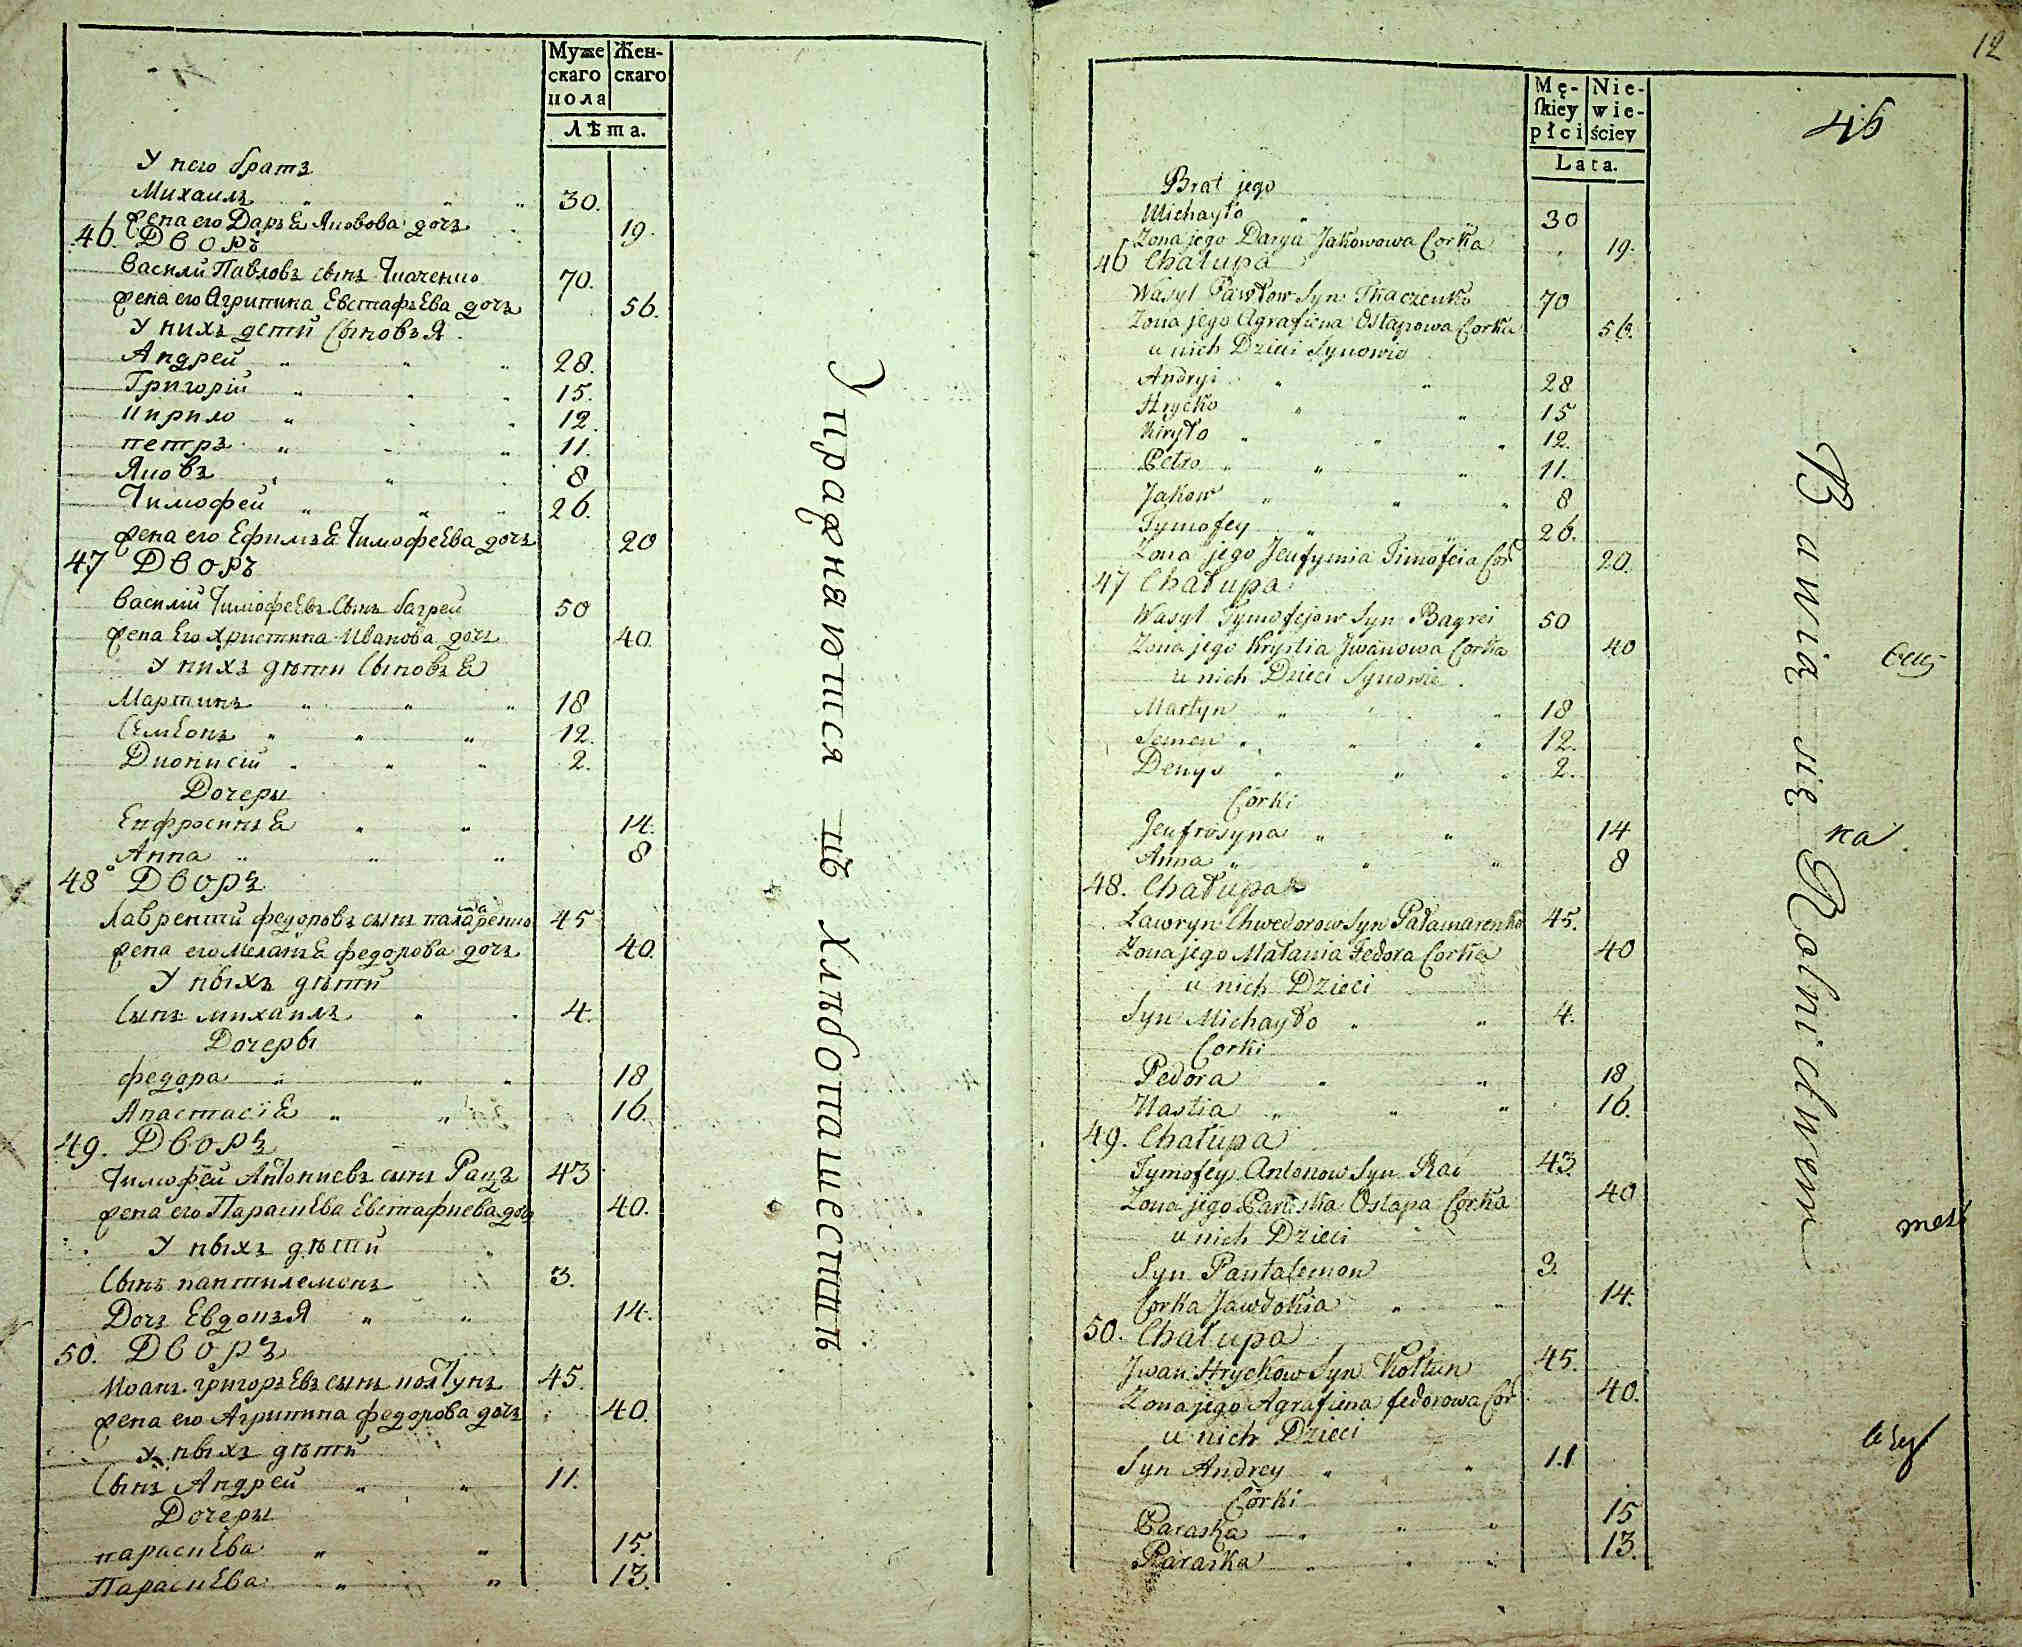 Муже Жен-
скаго скаго
пола
Лѣта.
У него братъ
Михаилъ 30.
жена его Дарья Яковова дочь 19.
46. Дворъ
Василий Павловъ сынъ Ткаченко 70.
жена его Агрипина Евстафьева дочь 56.
У нихъ дети Сыновья
Андрей 28.
Григорій 15.
Кирило 12.
петръ 11.
Яковъ 8
Тимофей 26.
жена его Ефимья Тимофеева дочь 20
47 Дворъ
Василій Тимофеевъ Сынъ багрей 50
жена Его христина Иванова дочь 40.
У нихъ дѣти Сыновья
Мартинъ 18
Семенъ 12.
Дионисій 2.
Дочеры
Ефросинья 14.
Анна 8
48 Дворъ
Лаврентий федоровъ сынъ паламаренко 45
жена его Меланья федорова дочь 40.
У ныхъ дѣти
Сынъ михаилъ 4.
Дочеры
федора 18
Анастасія 16.
49. Дворъ
Тимофей Антониевъ сынъ Рацъ 43
жена его Параскева Евстафиева дочь 40.
У ныхъ дѣти
Сынъ пантилемонъ 3.
Дочь Евдокья 14.
50. Дворъ
Иванъ григорьевъ сынъ колтунъ 45.
жена его Агрипина федорова дочь 40.
У ныхъ дѣти
Сынъ Андрей 11.
Дочеры
параскева 15.
Параскева 13.
Упражнаются въ хлѣбопашествѣ
12
Mę- Nie-
skiey wie-
płci ściey
Lata.
46
Brat jego
Michayło 30
Zona jego Darya Jakowowa Corka 19.
46 Chałupa
Wasyl Pawłow Syn Tkaczenko 70
Zona jego Agrafiena Ostapowa Corka 56.
u nich Dzieci Synowie
Andryi 28
Hrycko 15
Kiryło 12.
Petro 11.
Jakow 8
Tymofey 26.
Zona jego Jeufymia Timofeia Cor 20.
47 Chałupa
Wasyl Tymofejow Syn Bagrei 50
Zona jego Krystia Jwanowa Corka 40
u nich Dzieci Synowie
Martyn 18
Semen 12.
Denys 2.
Córki
Jeufrosyna 14
Anna 8
48. Chałupa
Ławryn Chwedorow Syn Pałamarenko 45.
Zona jego Małania Fedora Corka 40
u nich Dzieci
Syn Michayło 4.
Corki
Fedora 18
Nastia 16.
49. Chałupa
Tymofey Antonow Syn Rac 43.
Zona jego Paraska Ostapa Corka 40
u nich Dzieci
Syn Pantalemon 3.
Corka Jawdokia 14.
50. Chałupa
Jwan Hryckow Syn Kołtun 45.
Zona jego Agrafiena fedorowa Cor 40.
u nich Dzieci
Syn Andrey 11
Córki
Paraska 15
Paraska 13.
Bawią się Rolnictwem
ка